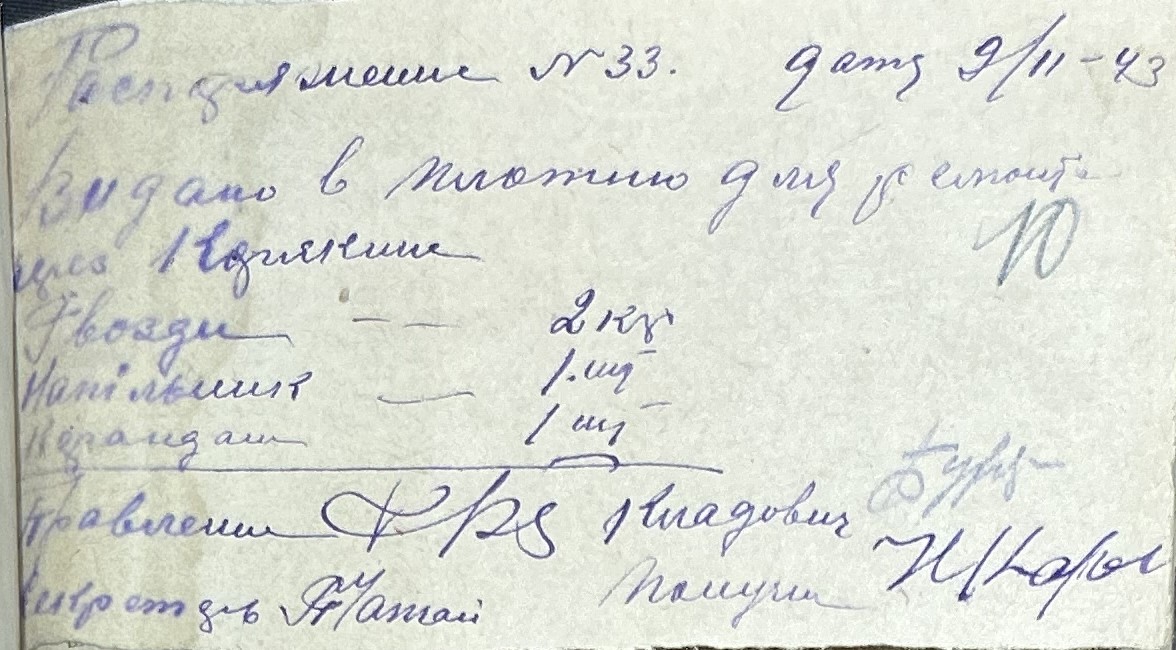 Распоряжение № 33. дата 9/II-43
Видано в плотню для ремонта
Карякин
Гвозди -- 2 кг
Напільник — 1. шт
Карандаш 1 шт
Правлении Кладович
Секретарь Получил